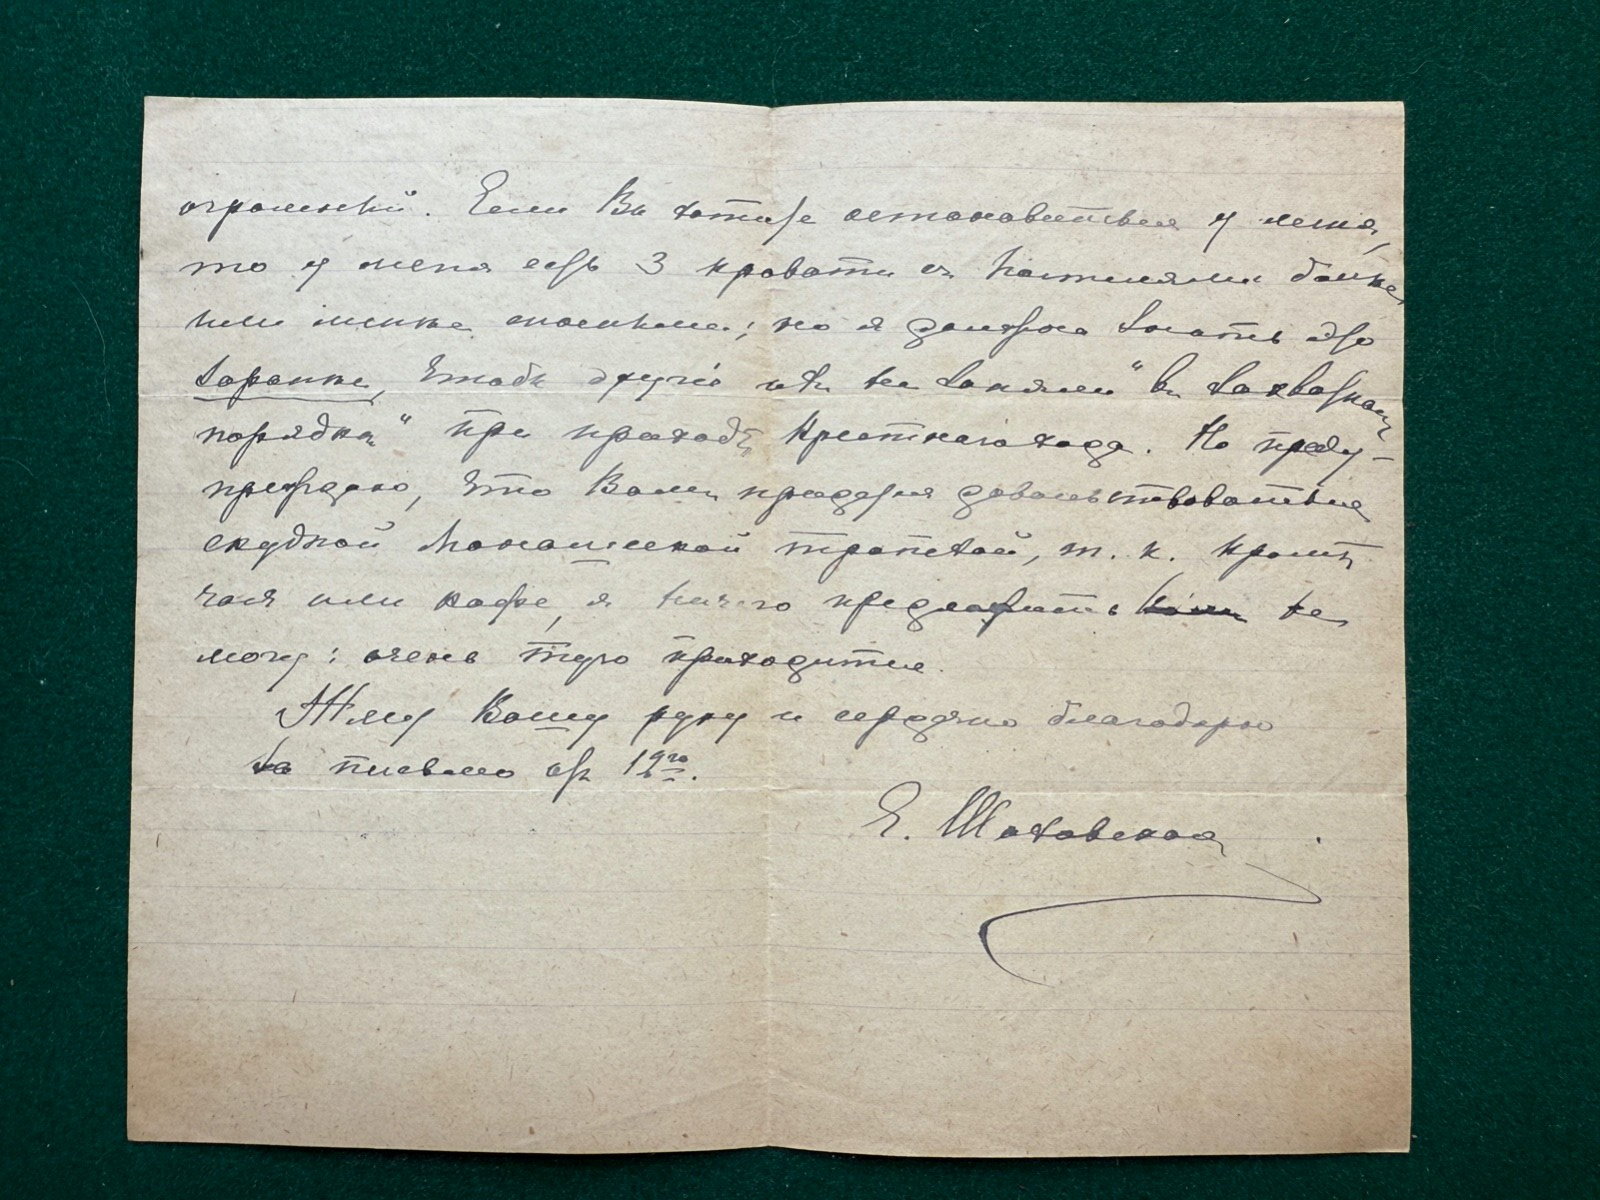 огромный. Если Вы хотите остановиться у меня,
то у меня есть 3 кровати съ постелями более
или менее сносными; но я должна знать это
заранѣе, чтобы другіе ихъ не заняли "въ захватномъ
порядкѣ" при приходѣ Крестнаго хода. Но преду-
преждаю, что Вамъ придется довольствоваться
скудной монашеской трапезой, т. к. кромѣ
чая или кофе, я ничего предложить не
могу: очень туго приходится.
Жму Вашу руку и сердечно благодарю
за письмо отъ 19го.
Е. Шаховская